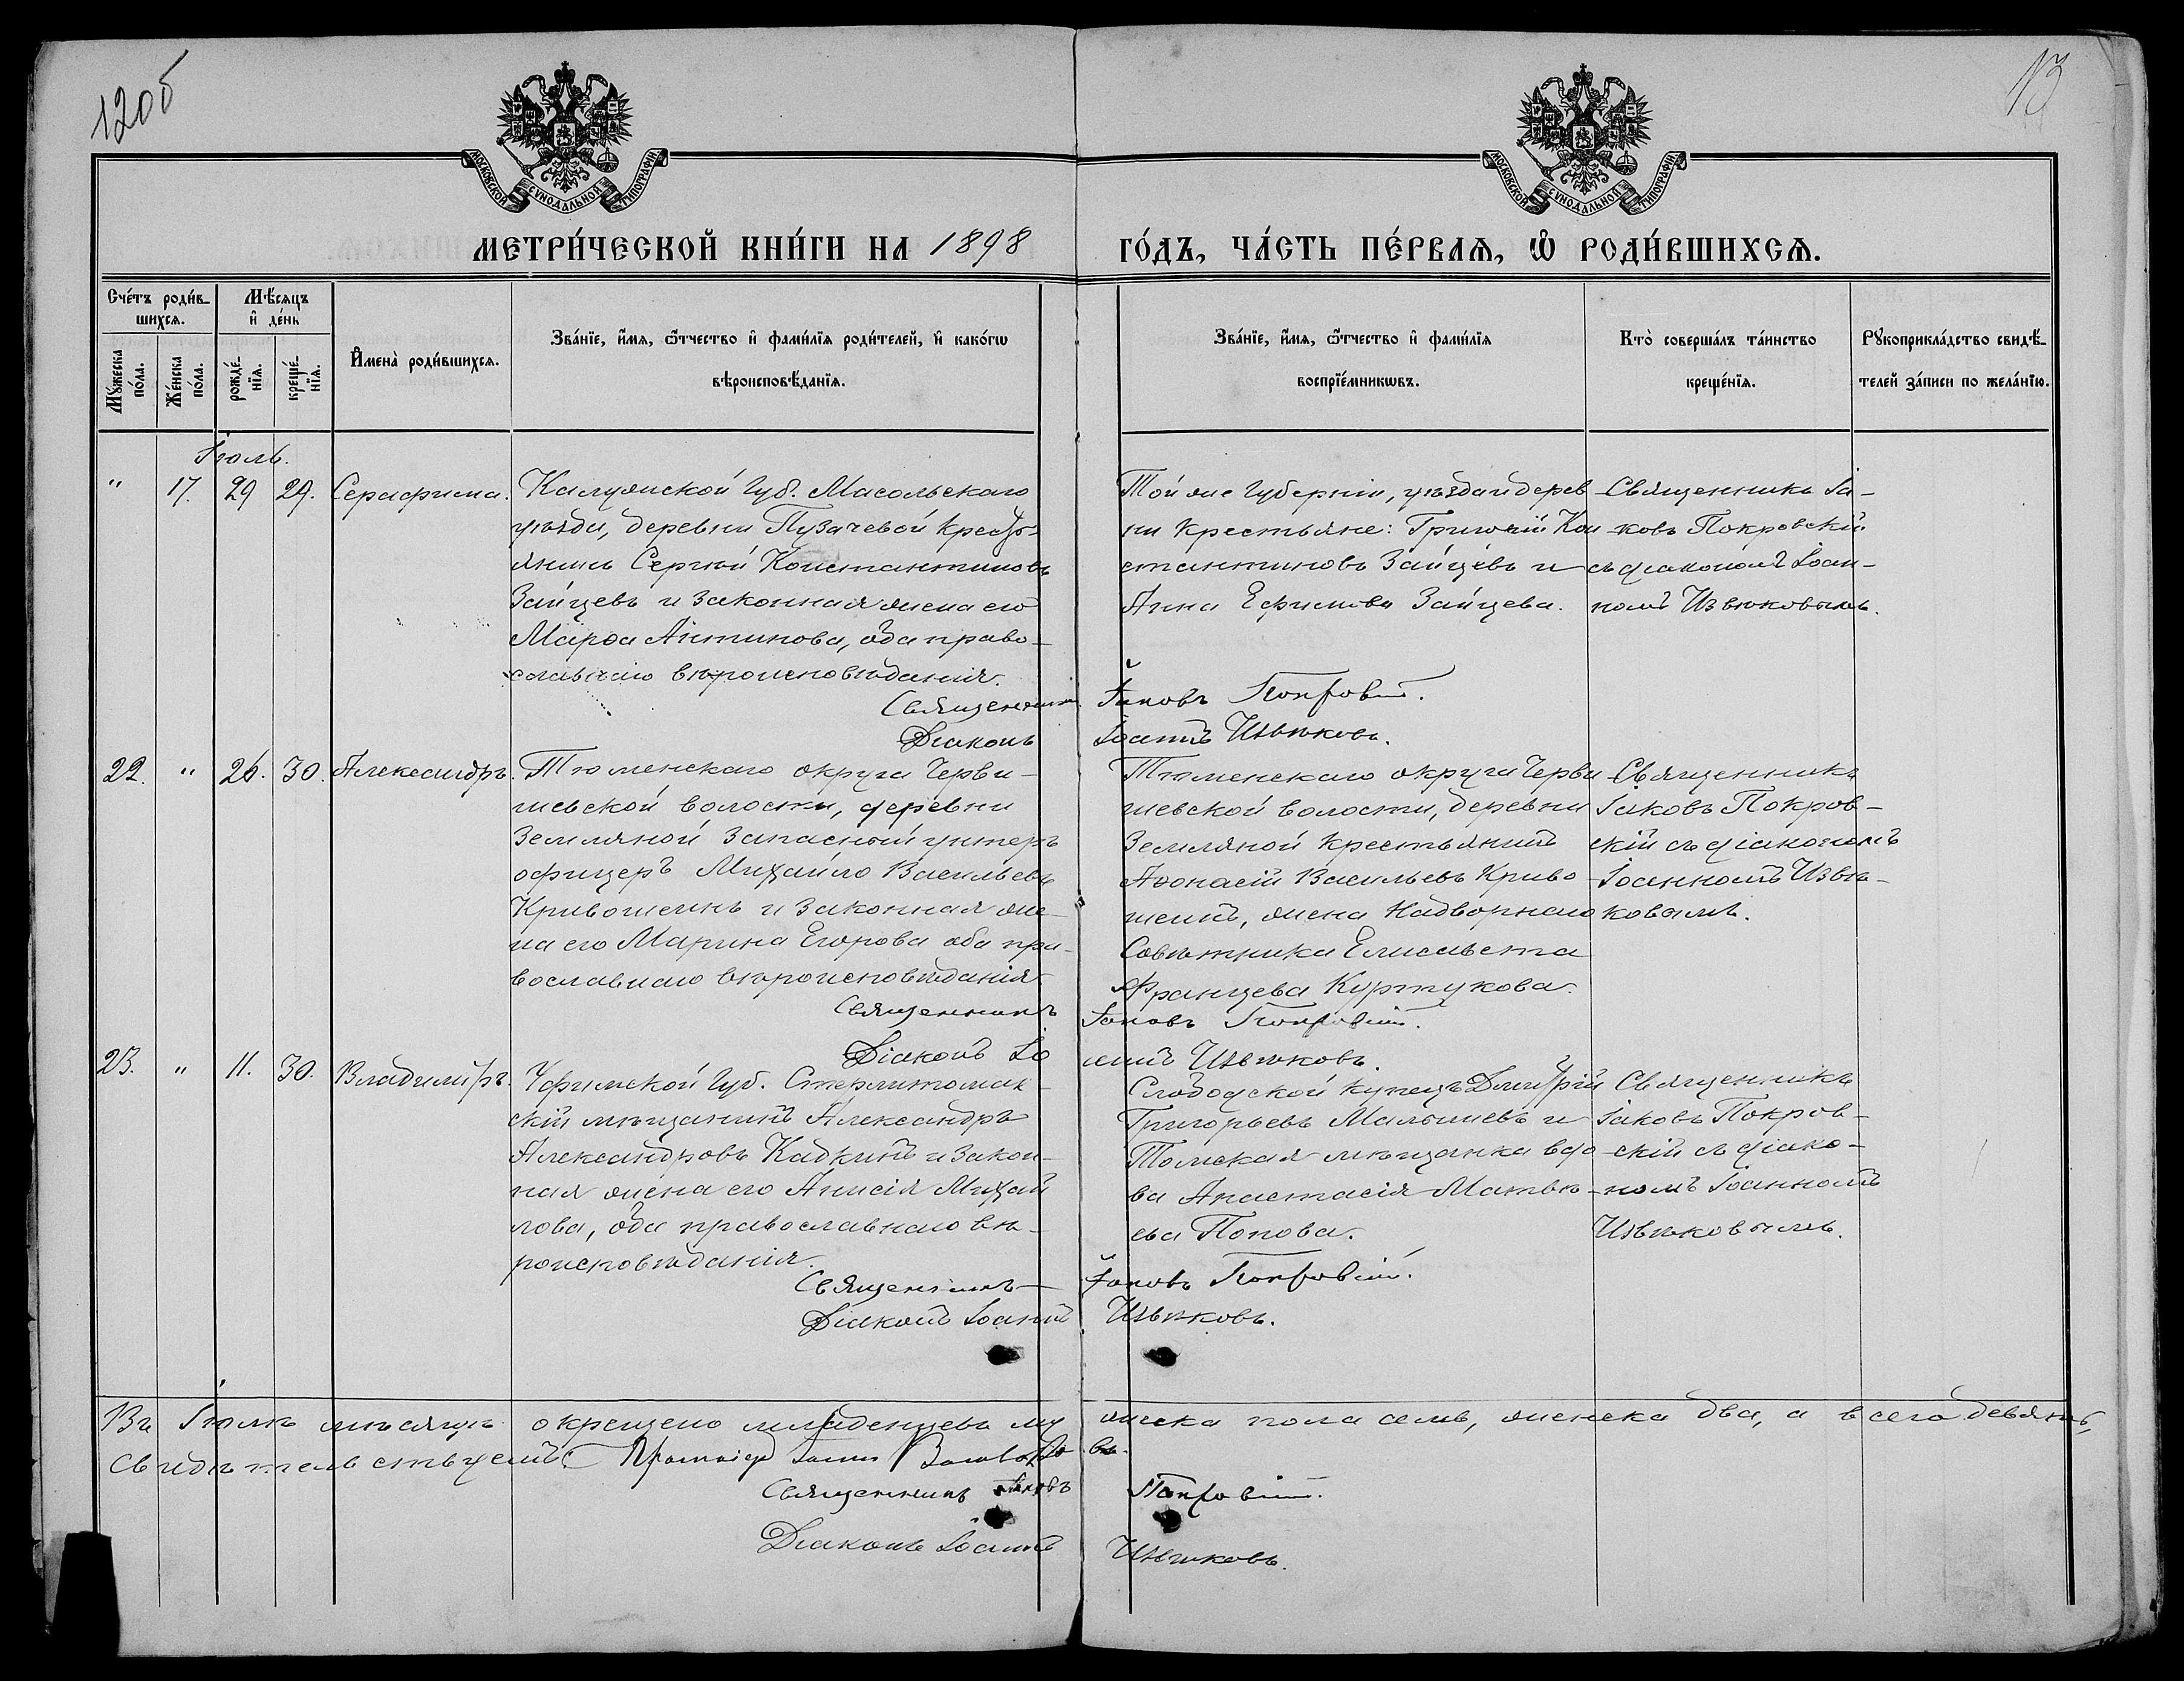 120б
13
МОСКОВСКОЙ СУНОДАЛЬНОЙ ТИПОГРАФІИ
МОСКОВСКОЙ СУНОДАЛЬНОЙ ТИПОГРАФІИ
МЕТРИ́ЧЕСКОЙ КНИ́ГИ НА 1898
ГО́ДЪ, ЧА́СТЬ ПЕ́РВАѦ, Ѡ҆ РОДИ́ВШИХСѦ.
Сче́тъ роди́в-
шихсѧ.
Мѣ́сѧцъ
и҆ де́нь
Мꙋ́жеска
по́ла.
Же́нска
по́ла.
рожде́-
нїѧ.
креще́-
нїѧ.
И҆мена̀ роди́вшихсѧ.
Зва́нїе, и҆́мѧ, ѻ҆́тчество и҆ фами́лїѧ роди́телей, и҆ како́гѡ
вѣроисповѣ́данїѧ.
Зва́нїе, и҆́мѧ, ѻ҆́тчество и҆ фами́лїѧ
воспрїе́мникѡвъ.
Кто̀ соверша́лъ та́инство
креще́нїѧ.
Рꙋкоприкла́дство свидѣ́-
телей за́писи по жела́нїю.
Іюль.
" 17. 29 29. Серафима.
Калужской Губ. Масольскаго
уѣзда, деревни Пузачевой кресть-
янинъ Сергѣй Константиновъ
Зайцевъ и законная жена его
Марѳа Антипова, оба право-
славнаго вѣроисповѣданія.
Священникъ
Діаконъ
Той же Губерніи, уѣзда и дерев
ни крестьяне: Григорій Кон
стантиновъ Зайцевъ и
Анна Ефимова Зайцева.
Іаковъ Покровскій.
Іоаннъ Извѣковъ.
Священникъ Іа-
ковъ Покровскій
съ діакономъ Іоан-
номъ Извѣковымъ.
22. " 26. 30. Александръ.
Тюменскаго округа Черви-
шевской волости, деревни
Земляной запасный унтеръ
офицеръ Михайло Васильевъ
Кривошеинъ и законная же-
на его Марина Егорова оба пра-
вославнаго вѣроисповѣданія
Священникъ
Діаконъ Іо
Тюменскаго округа Черви
шевской волости, деревни
Земляной крестьянинъ
Аѳонасій Васильевъ Криво-
шеинъ, жена Надворнаго
Совѣтника Елисавета
Францева Куртукова.
Іаковъ Покровскій.
аннъ Извѣковъ.
Священникъ
Іаковъ Покров-
скій съ діакономъ
Іоанномъ Извѣ-
ковымъ.
23. " 11. 30. Владиміръ.
Уфимской Губ. Стерлитомак-
скій мѣщанинъ Александръ
Александровъ Кадкинъ и закон-
ная жена его Анисія Михай
лова, оба православнаго вѣ-
роисповѣданія.
Священникъ
Діаконъ Іоаннъ
Слободской купецъ Димитрій
Григорьевъ Малышевъ и
Томская мѣщанка вдо-
ва Анастасія Матвѣ-
ева Попова.
Іаковъ Покровскій.
Извѣковъ.
Священникъ
Іаковъ Покров-
скій съ діако-
номъ Іоанномъ
Извѣковымъ.
Въ Іюлѣ мѣсяцѣ окрещено младенцевъ му
жеска пола семь, женска два, а всего девять,
свидѣтельствуемъ:
Священникъ Іаковъ
Покровскій.
Діаконъ Іоаннъ
Извѣковъ.